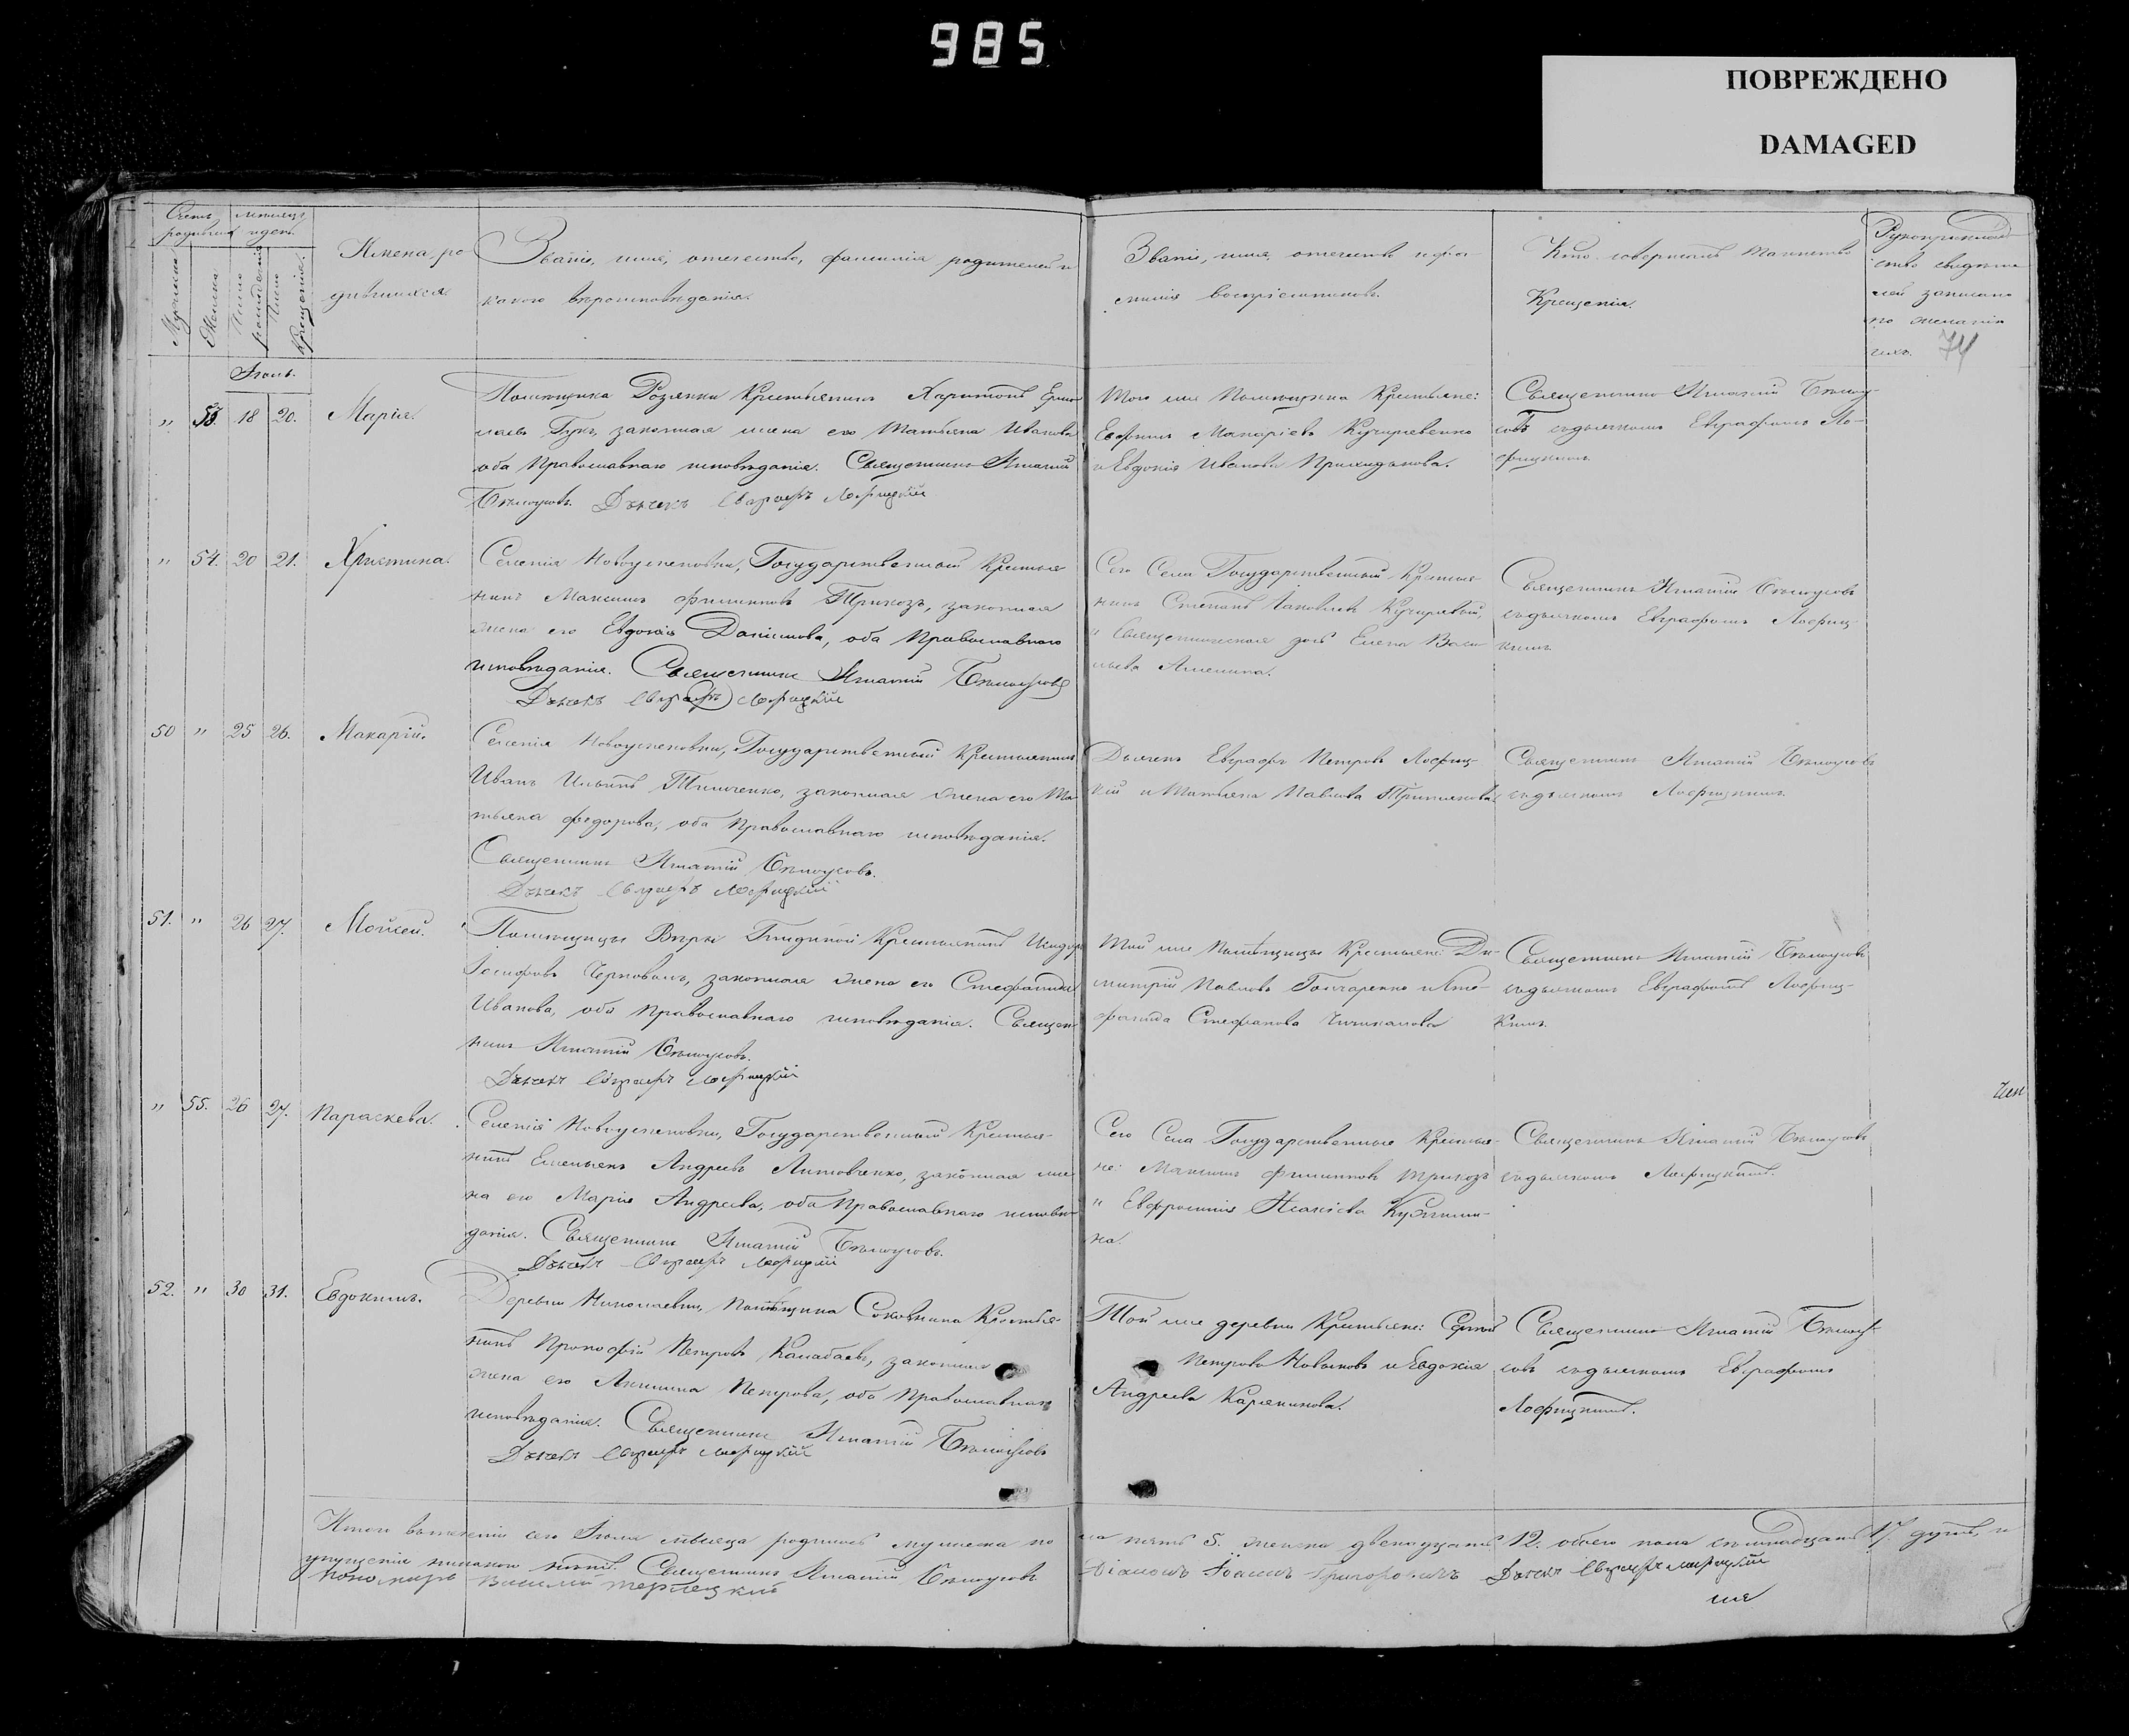 985
ПОВРЕЖДЕНО
DAMAGED
Счетъ родившихся
мѣсяцъ и день
Мужеска
Женска
Число рожденія
Число крещенія.
Имена ро
дившихся.
Званіе, имя, отчество, фамилія родителей и
какого вѣроисповѣданія.
Званіе, имя, отчество и фа-
милія воспріемниковъ.
Кто совершалъ таинство
Крещенія.
Рукоприклад
ство свидѣте
лей записано
по желанію
ихъ.
74
Іюль.
" 53. 18 20. Марія.
Помѣщика Розлянки Крестьянинъ Харитонъ Ермо
лаевъ Гукъ, законная жена его Татьяна Иванова
оба Православнаго исповѣданія. Священникъ Игнатій
Бѣлоусовъ. Дьячекъ Евграфъ Лофицкій
Того же Помѣщика Крестьяне:
Евфимъ Макаріевъ Кучиревенко
и Евдокія Иванова Приходькова.
Священникъ Игнатій Бѣлоу-
совъ съ дьячкомъ Евграфомъ Ло-
фицкимъ.
" 54. 20 21. Христина.
Селенія Новоуспеновки, Государственный Крестья
нинъ Максимъ Филиповъ Трикозъ, законная
жена его Евдокія Данилова, оба Православнаго
исповѣданія. Священникъ Игнатій Бѣлоусовъ
Дьячекъ Евграфъ Лофицкій
Сего Села Государственный Крестья
нинъ Стефанъ Іаковлевъ Кучиревый,
и Священническая дочь Елена Васи
льева Ашенина.
Священникъ Игнатій Бѣлоусовъ
съ дьячкомъ Евграфомъ Лофиц-
кимъ.
50 " 25 26. Макарій.
Селенія Новоуспеновки, Государственный Крестьянинъ
Иванъ Ильинъ Тимченко, законная жена его Та
тьяна Федорова, оба Православнаго исповѣданія.
Священникъ Игнатій Бѣлоусовъ.
Дьячекъ Евграфъ Лофицкій
Дьячекъ Евграфъ Петровъ Лофиц-
кій и Татьяна Павлова
Священникъ Игнатій Бѣлоусовъ
съ дьячкомъ Лофицкимъ.
51. " 26 27. Мойсей.
Помѣщицы Вѣры Крестьянинъ Исидоръ
Іосифовъ Черноволъ, законная жена его Стефанида
Иванова, оба Православнаго исповѣданія. Священ
никъ Игнатій Бѣлоусовъ.
Дьячекъ Евграфъ Лофицкій
Той же Помѣщицы Крестьяне: Ди-
митрій Павловъ Гончаренко и Сте-
фанида Стефанова Чичиканова
Священникъ Игнатій Бѣлоусовъ
съ дьячкомъ Евграфомъ Лофиц-
кимъ.
" 55. 26 27. Параскева.
Селенія Новоуспеновки, Государственный Крестья-
нинъ Емельянъ Андреевъ Литовченко, законная же
на его Марія Андреева, оба Православнаго исповѣ-
данія. Священникъ Игнатій Бѣлоусовъ.
Дьячекъ Евграфъ Лофицкій
Сего Села Государственные Крестья-
не: Максимъ Филиповъ Трикозъ
и Евфросинія
на.
Священникъ Игнатій Бѣлоусовъ
съ дьячкомъ Лофицкимъ.
52. " 30 31. Евдокимъ.
Деревни Николаевки, Помѣщика Соковнина Крестья-
нинъ Прокофій Петровъ Калабаевъ, законная
жена его Акилина Петрова, оба Православнаго
исповѣданія. Священникъ Игнатій Бѣлоусовъ
Дьячекъ Евграфъ Лофицкій
Той же деревни Крестьяне: Сергій
Петровъ Новиковъ и Евдокія
Андреева Карякинова.
Священникъ Игнатій Бѣлоу-
совъ съ дьячкомъ Евграфомъ
Лофицкимъ.
Итого въ теченіи сего Іюля мѣсяца родилось мужеска по
ла пять 5. женска двенадцать 12. обоего пола семнадцать 17. душъ, и
упущенія никакого нѣтъ. Священникъ Игнатій Бѣлоусовъ
Діаконъ Іоаннъ Григоровичъ Дьячекъ Евграфъ Лофицкій
Пономарь Василій Терлецкій